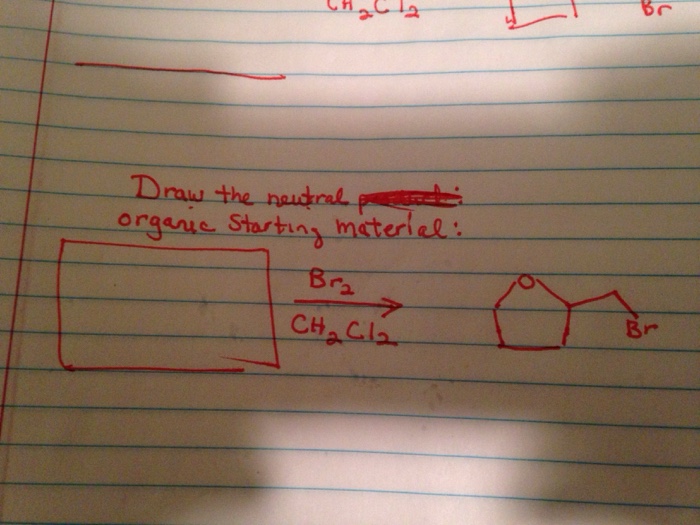 CH2Cl2 Br
Draw the neutral
organic Starting material:
Br2
CH2Cl2
O
Br